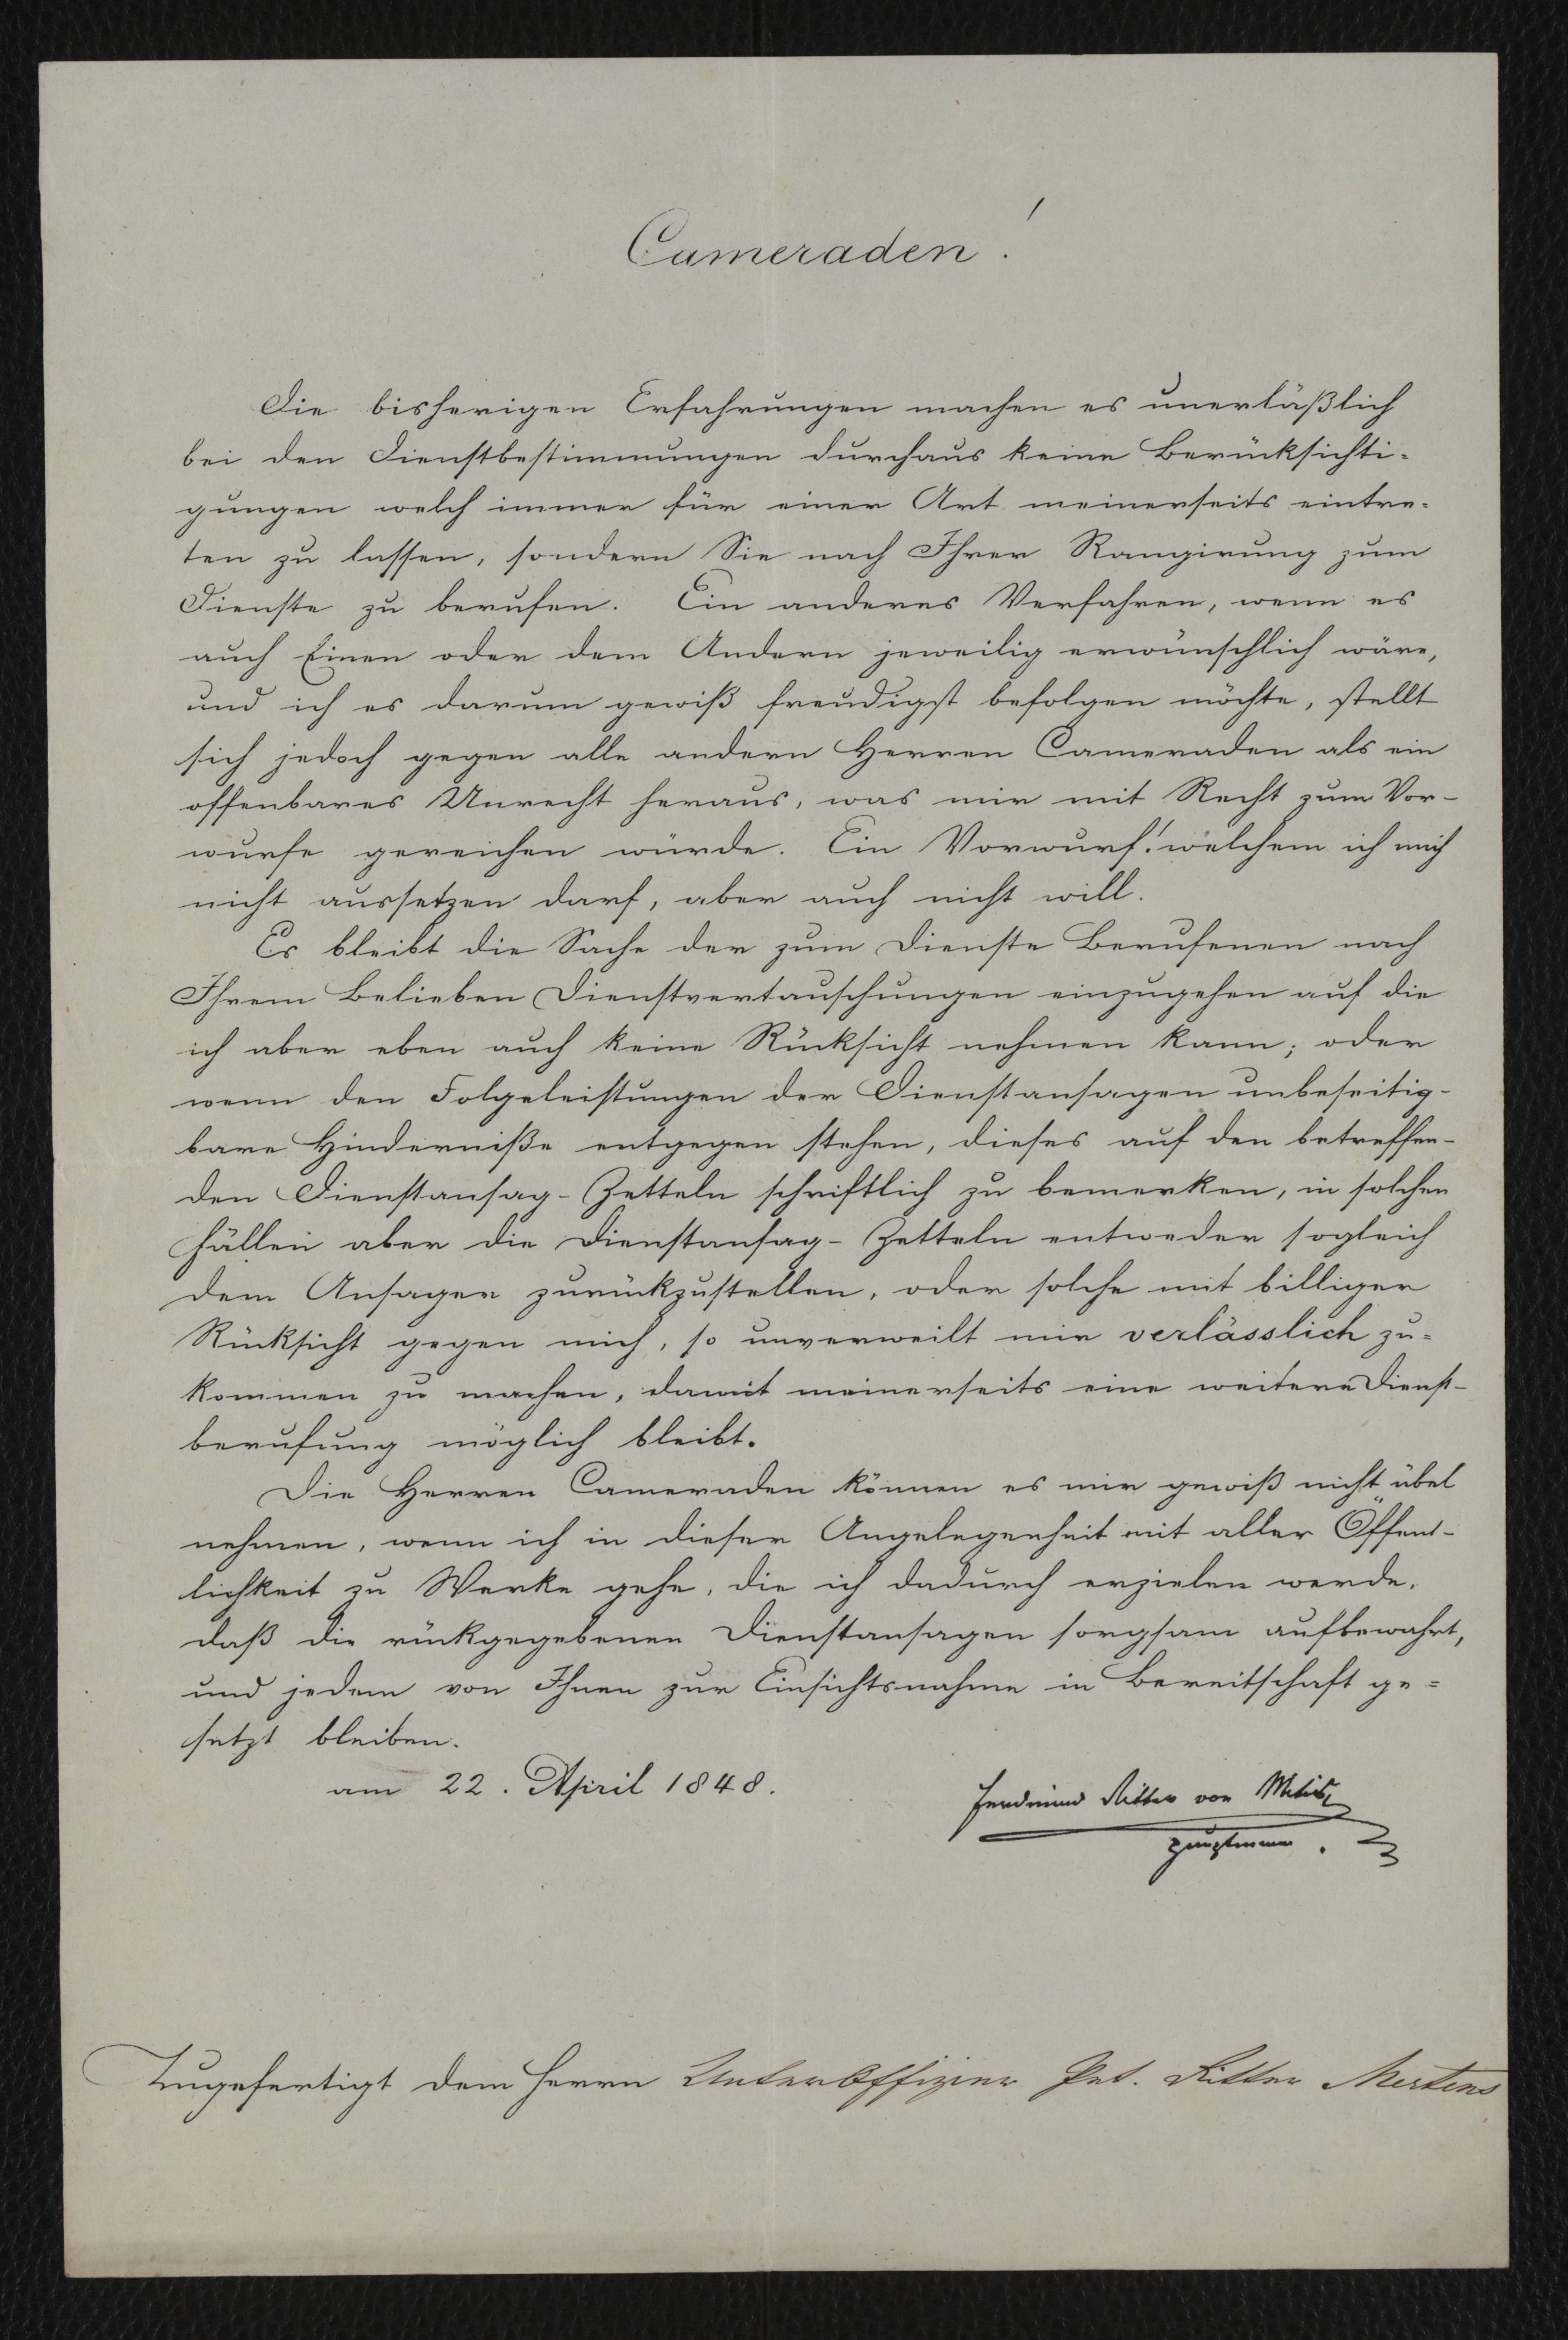 Cameraden!
Die bisherigen Erfahrungen machen es unerläßlich
bei den Dienstbestimmungen durchaus keine Berücksichti-
gungen welch immer für einer Art meinerseits eintre-
ten zu lassen, sondern Sie nach Ihrer Rangirung zum
Dienste zu berufen. Ein anderes Verfahren, wenn es
auch Einen oder dem Andern jeweilig erwünschlich wäre,
und ich es darum gewiß freudigst befolgen möchte, stellt
sich jedoch gegen alle andern Herren Cameraden als ein
offenbares Unrecht heraus, was mir mit Recht zum Vor-
wurfe gereichen würde. Ein Vorwurf! welchem ich mich
nicht aussetzen darf, aber auch nicht will.
Es bleibt die Sache der zum Dienste Berufenen nach
Ihrem Belieben Dienstvertauschungen einzugehen auf die
ich aber eben auch keine Rücksicht nehmen kann; oder
wenn den Folgeleistungen der Dienstansagen unbeseitig-
bare Hinderniße entgegen stehen, dieses auf den betreffen-
den Dienstansag-Zetteln schriftlich zu bemerken, in solchen
Fällen aber die Dienstansag-Zetteln entweder sogleich
dem Ansager zurückzustellen, oder solche mit billiger
Rücksicht gegen mich, so unverweilt mir verlässlich zu-
kommen zu machen, damit meinerseits eine weitere Dienst-
berufung möglich bleibt.
Die Herren Cameraden können es mir gewiß nicht übel
nehmen, wenn ich in dieser Angelegenheit mit aller Öffent-
lichkeit zu Werke gehe, die ich dadurch erzielen werde,
daß die rückgegebenen Dienstansagen sorgsam aufbewahrt,
und jedem von Ihnen zur Einsichtsnahme in Bereitschaft ge-
setzt bleiben.
am 22. April 1848.
Ferdinand Ritter von
Hauptmann.
Zugefertigt dem Herrn Unteroffizier Ritter Mertens